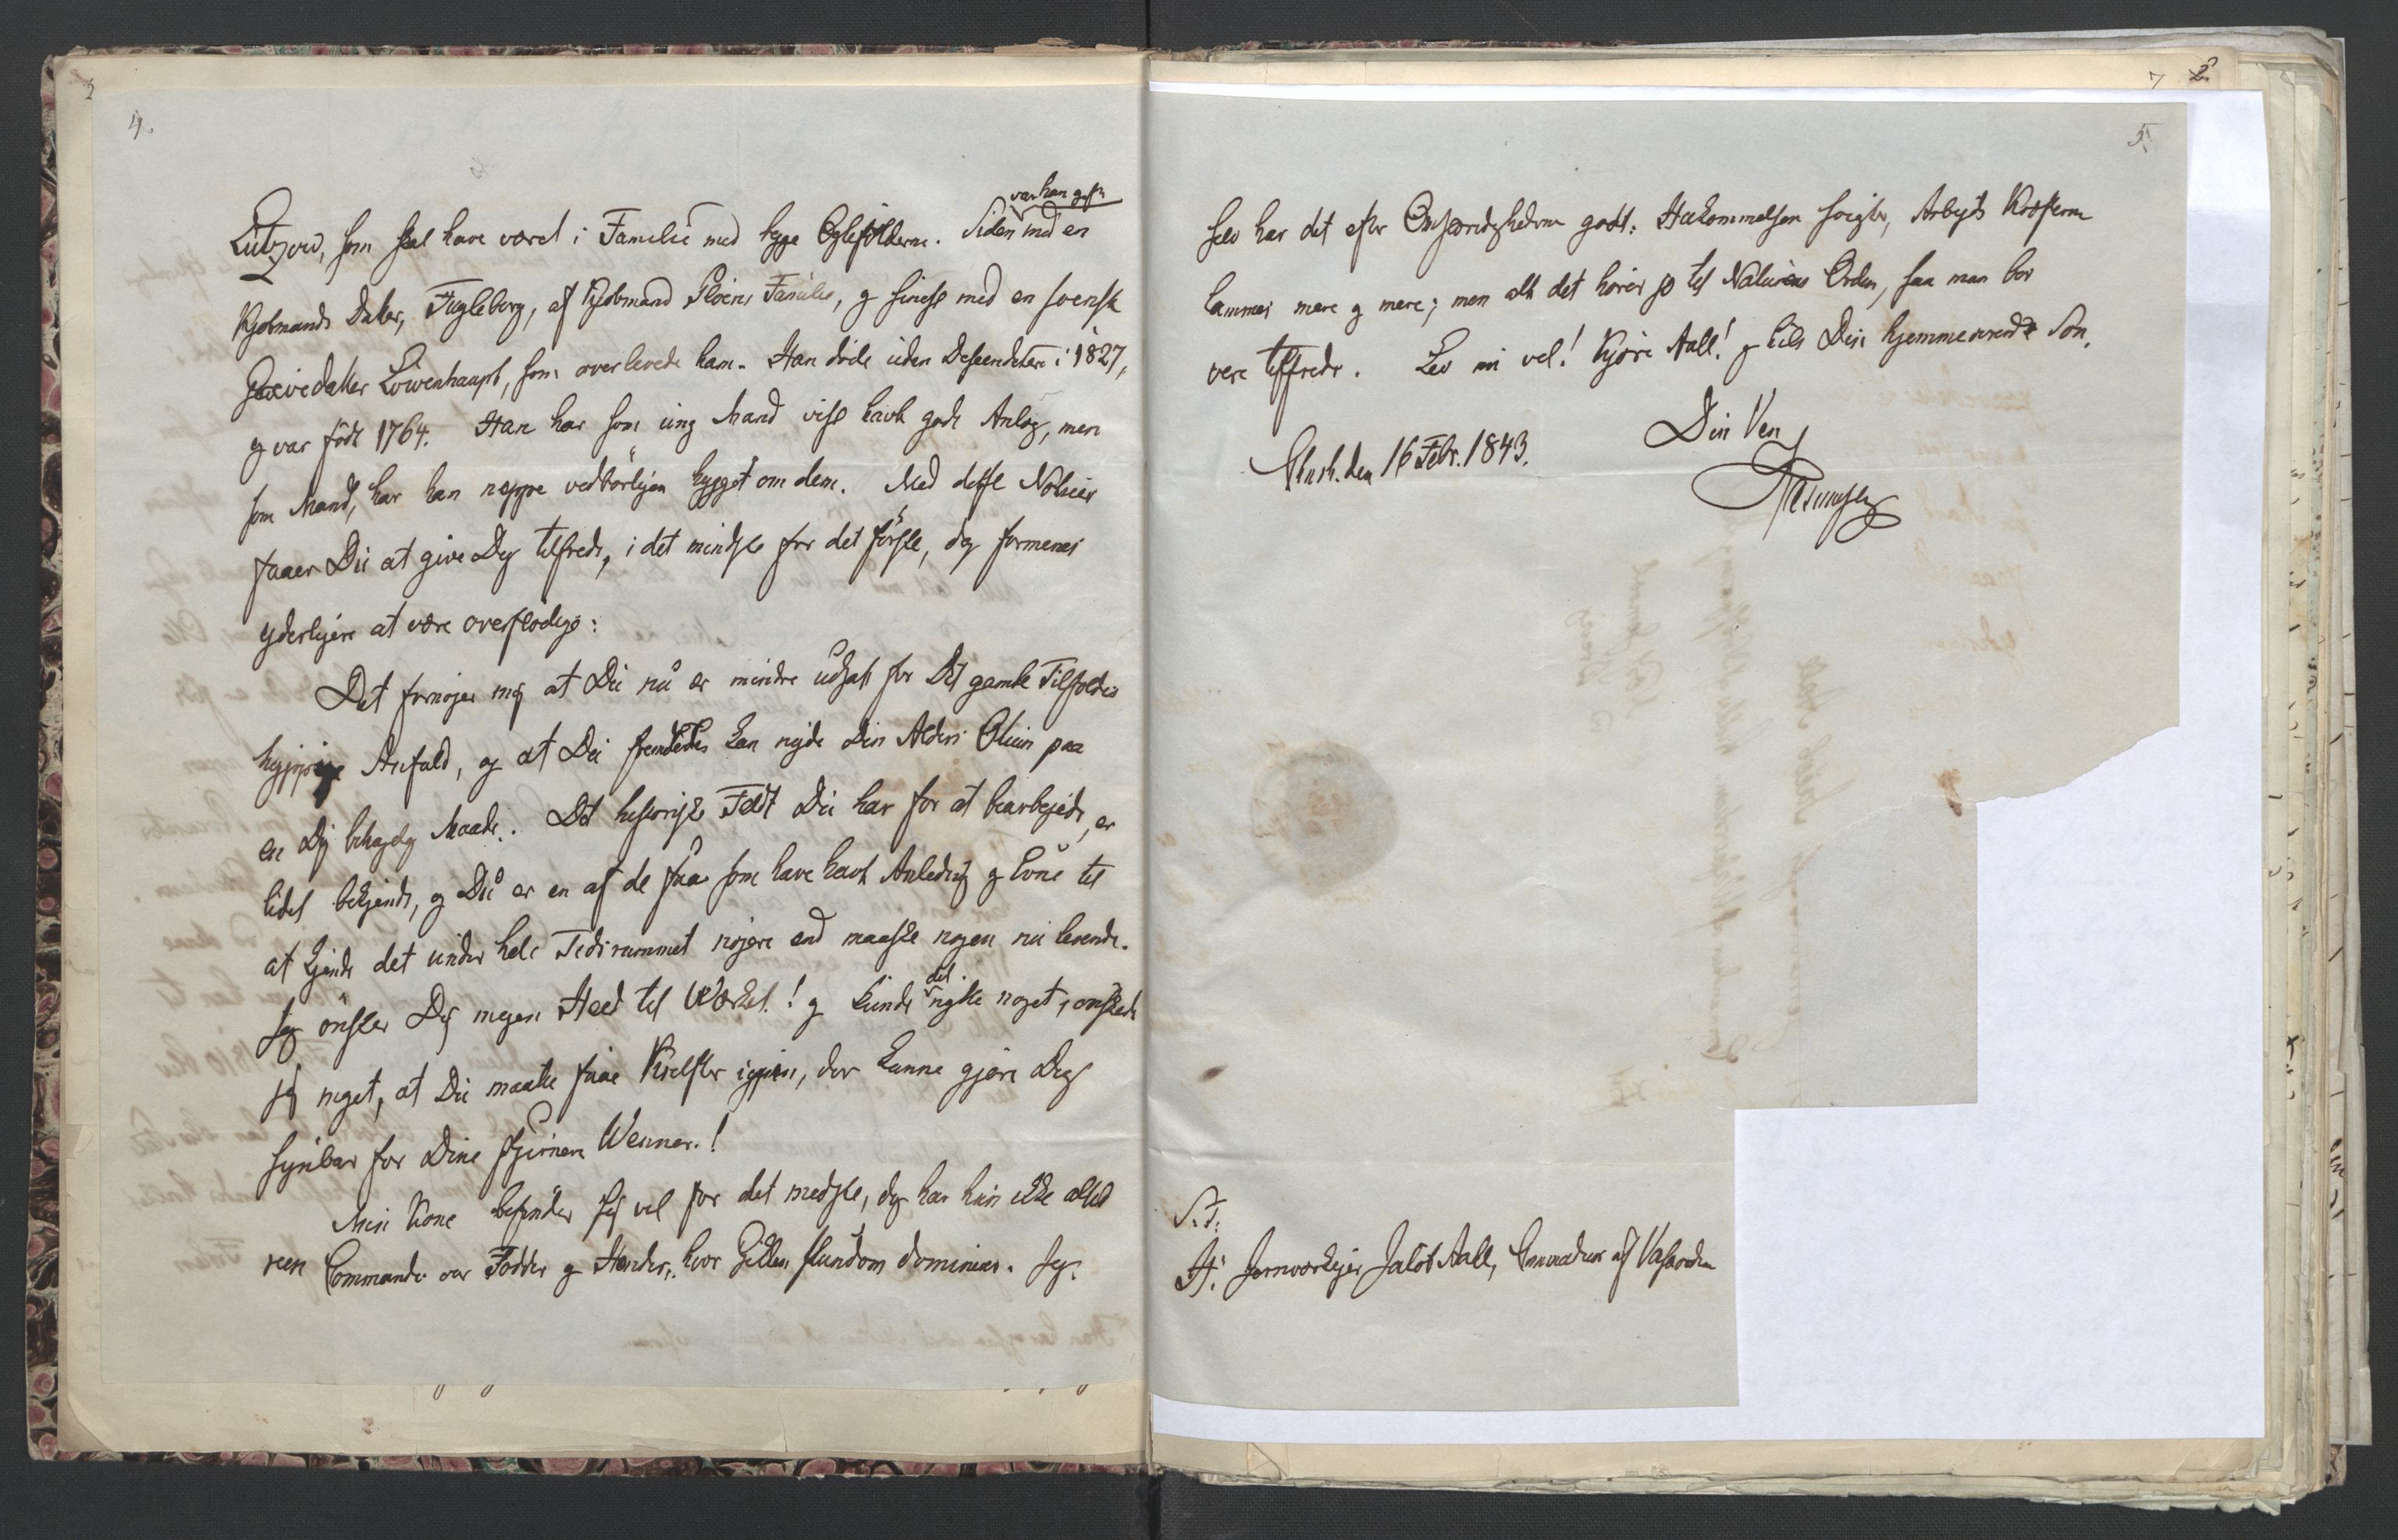 4.
Lützow, som skal have været i Familie med begge . Siden var han gift med en
Kjøbmands Datter, Fugleberg, af Kjøbmand Familie, og sidst med en svensk
Grevedatter Löwenhaupt, som overlevede ham. Han döde uden Descendenter i 1827,
og var födt 1764. Han har som ung Mand vist havt gode Anlæg, men
som Mand, har han neppe vedbörligen bygget om dem. Med disse Notiser
faaer Du at give Dig tilfreds, i det mindste for det förste, da formener
yderligere at være overflödige:
Det fornöjer mig at Du nu er mindre udsatt for Dit gamle Tilfældes
hyppige Anfald, og at Du fremdeles kan nyde Din Alders Otium paa
en Dig behagelig Maade. Det historiske Feldt Du har for at bearbejde, er
lidet bekjendt, og Du er en af de faa som have havt Anledning og Evne til
at kjende det under hele Tidsrummet nöjere end maaske nogen nu levende.
Jeg önsker Dig megen Held til Værket! og kunde det nytte noget, önskede
jeg meget, at Du maatte faae Kræfter igjen, der kunne gjöre Dig
synbar for Dine fjernere Wenner.!
Min Kone befinder sig vel for det mestste, dog har hun ikke altid
reen Commando over Födder og Hænder, hvor Gigten stundom dominerer. Jeg
7 2
5.
selv har det efter Omstændighederne godt: Hukommelsen svigter, Arbejds Kræfterne
lammes mere og mere; men alt det hörer jo til Naturens Orden, saa man bör
være tilfreds. Lev nu vel! Kjære Aall! og hils Din hjemmeværende Sön.
Din Ven
Chrsh. den 16 Febr. 1843.
S. T.
Hr. Jernværkseier Jacob Aall, Commandeur af Vasaorden